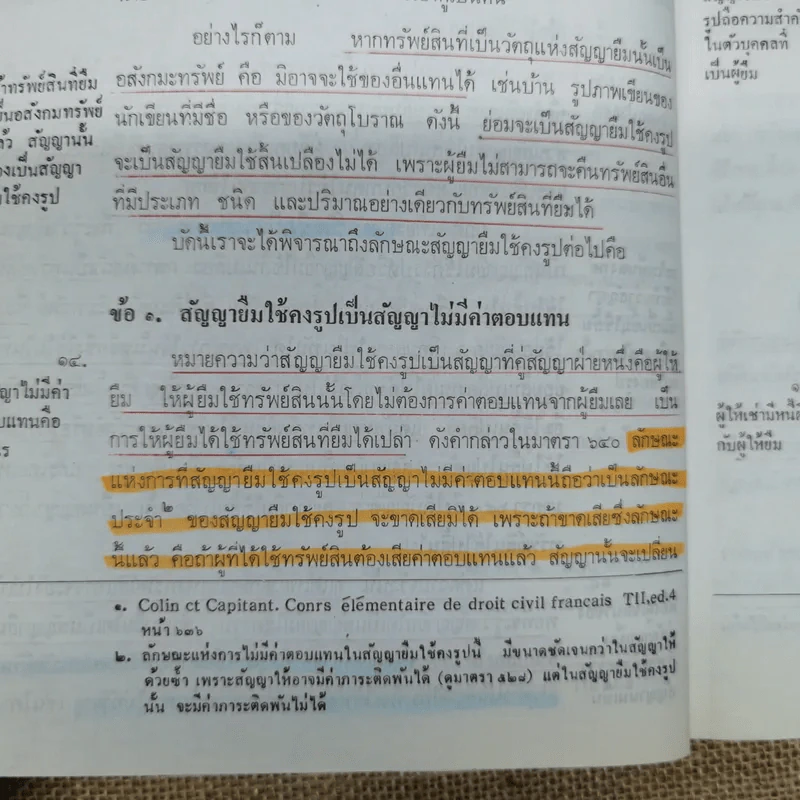 อย่างไรก็ตาม หากทรัพย์สินที่เป็นวัตถุแห่งสัญญายืมนั้นเป็น
อสังกมะทรัพย์ คือ มิอาจจะใช้ของอื่นแทนได้ เช่นบ้าน รูปภาพเขียนของ
นักเขียนที่มีชื่อ หรือของวัตถุโบราณ ดังนี้ ย่อมจะเป็นสัญญายืมใช้คงรูป
จะเป็นสัญญายืมใช้สิ้นเปลืองไม่ได้ เพราะผู้ยืมไม่สามารถจะคืนทรัพย์สินอื่น
ที่มีประเภท ชนิด และปริมาณอย่างเดียวกับทรัพย์สินที่ยืมได้
บัดนี้เราจะได้พิจารณาถึงลักษณะสัญญายืมใช้คงรูปต่อไปคือ
ข้อ ๑. สัญญายืมใช้คงรูปเป็นสัญญาไม่มีค่าตอบแทน
หมายความว่าสัญญายืมใช้คงรูปเป็นสัญญาที่คู่สัญญาฝ่ายหนึ่งคือผู้ให้
ยืม ให้ผู้ยืมใช้ทรัพย์สินนั้นโดยไม่ต้องการค่าตอบแทนจากผู้ยืมเลย เป็น
การให้ผู้ยืมได้ใช้ทรัพย์สินที่ยืมได้เปล่า ดังคำกล่าวในมาตรา ๖๔๐ ลักษณะ
แห่งการที่สัญญายืมใช้คงรูปเป็นสัญญาไม่มีค่าตอบแทนนี้ถือว่าเป็นลักษณะ
ประจำ๒ ของสัญญายืมใช้คงรูป จะขาดเสียมิได้ เพราะถ้าขาดเสียซึ่งลักษณะ
นี้แล้ว คือถ้าผู้ที่ได้ใช้ทรัพย์สินต้องเสียค่าตอบแทนแล้ว สัญญานั้นจะเปลี่ยน
๑. Colin ct Capitant. Conrs élémentaire de droit civil francais TII,ed.4
หน้า ๖๓๖
๒. ลักษณะแห่งการไม่มีค่าตอบแทนในสัญญายืมใช้คงรูปนี้ มีขนาดชัดเจนกว่าในสัญญาให้
ด้วยซ้ำ เพราะสัญญาให้อาจมีค่าภาระติดพันได้ (ดูมาตรา ๕๒๘) แต่ในสัญญายืมใช้คงรูป
นั้น จะมีค่าภาระติดพันไม่ได้
ทรัพย์สินที่ยืม
อสังกมทรัพย์
สัญญานั้น
เป็นสัญญา
ใช้คงรูป
๑๔.
ไม่มีค่า
แทนคือ
ในตัวบุคคลที่
เป็นผู้ยืม
กับผู้ให้ยืม